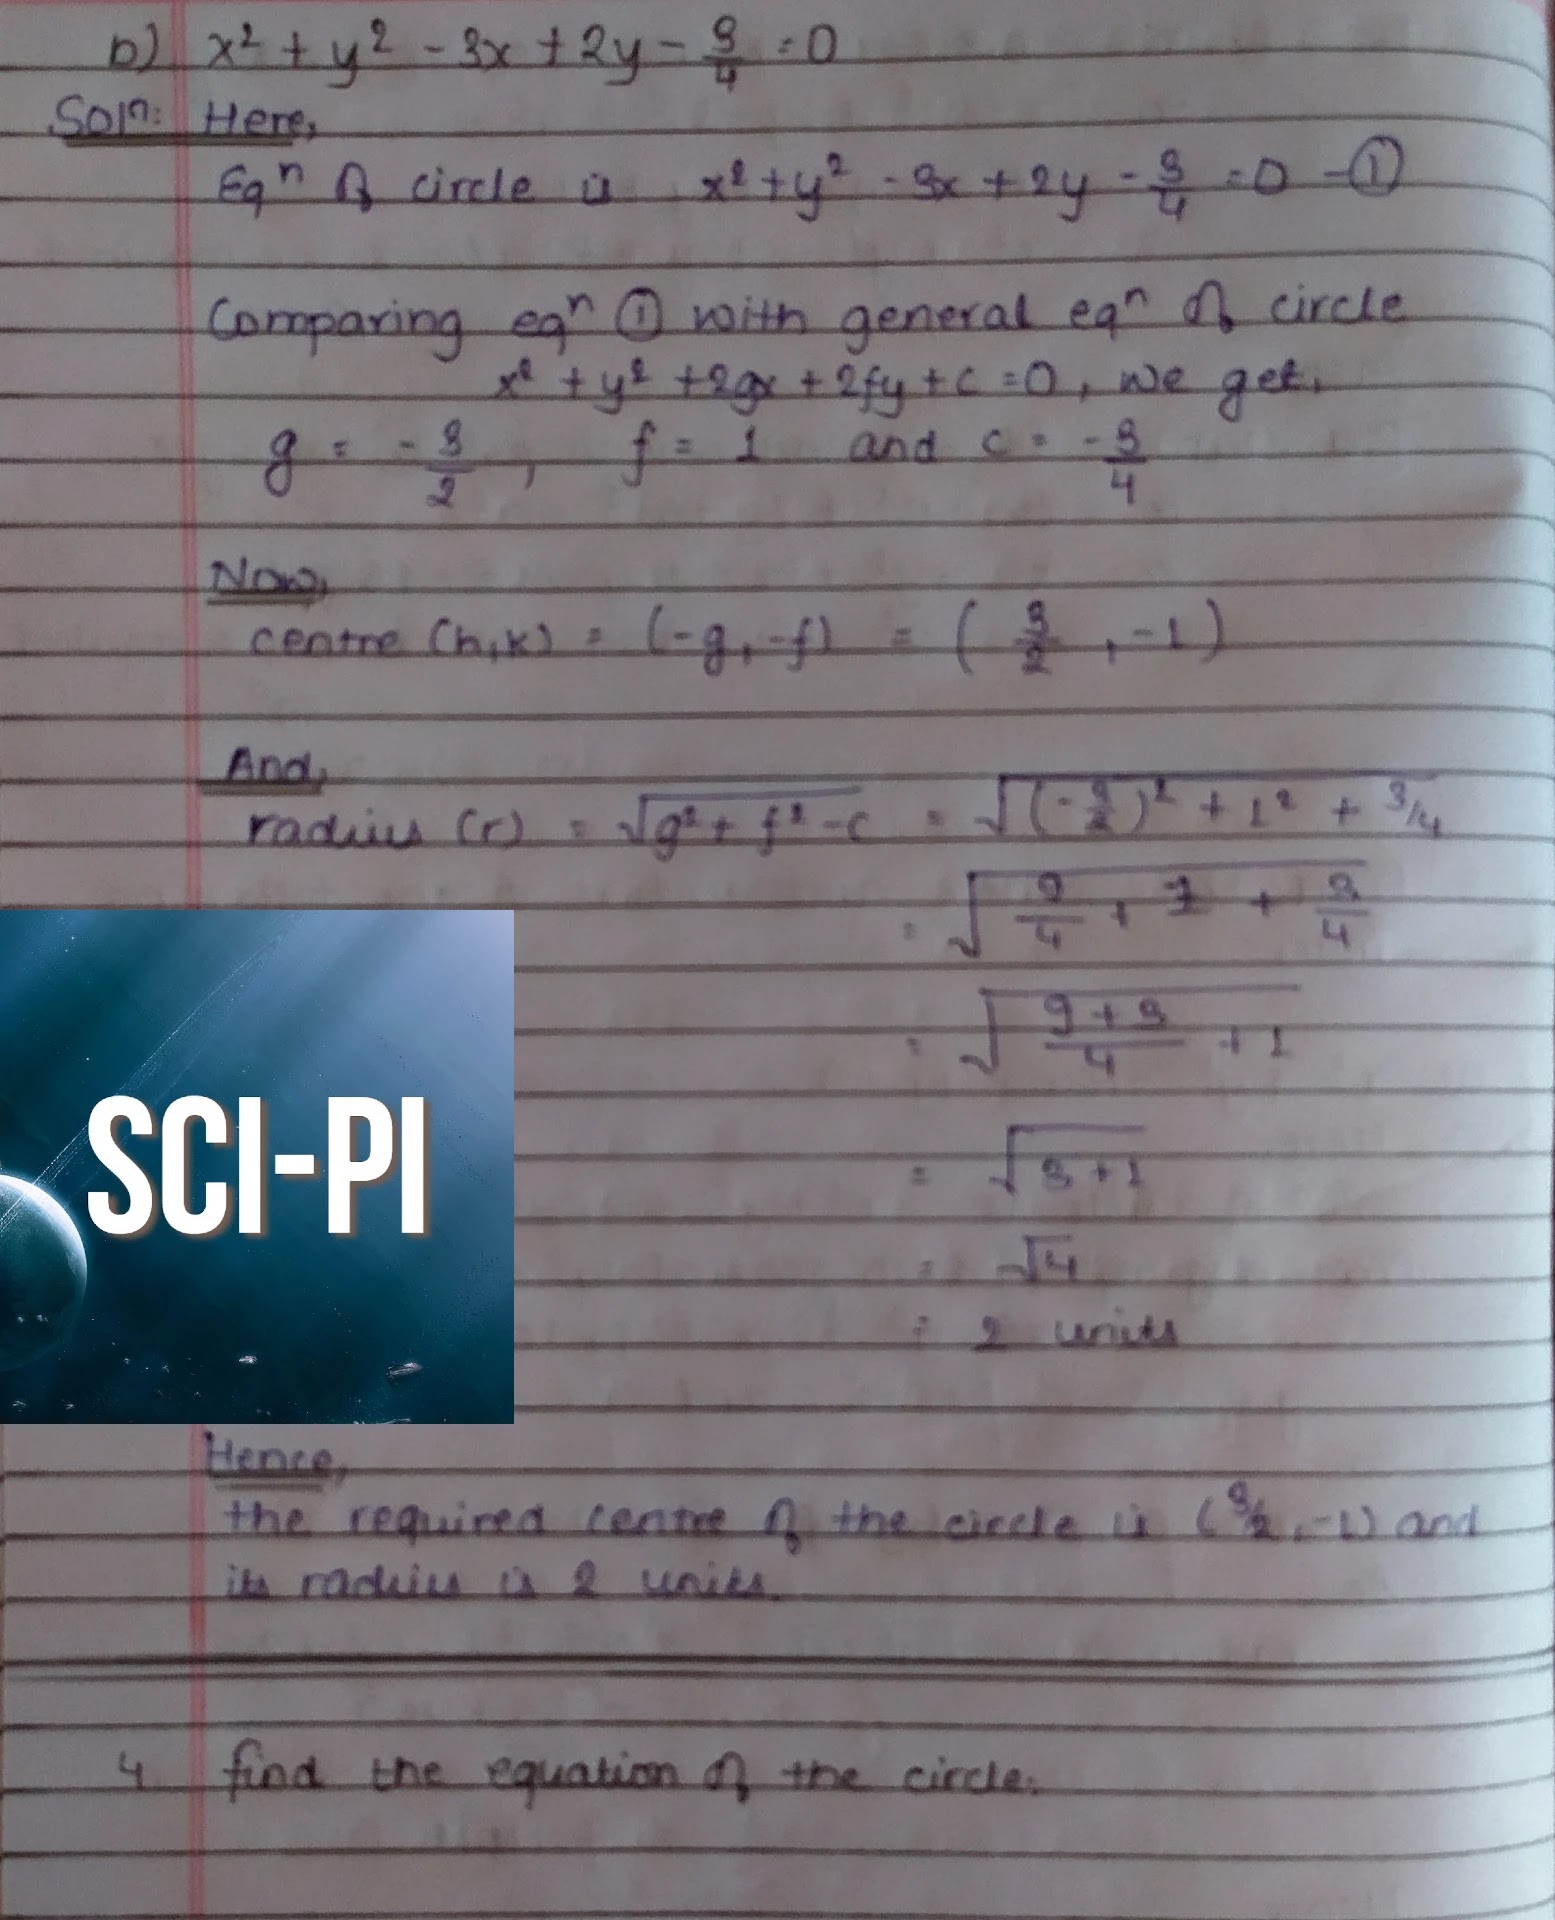 b) x² + y² - 3x + 2y - 3/4 = 0
Solⁿ: Here,
Eqⁿ of circle is x² + y² - 3x + 2y - 3/4 = 0 - ①
Comparing eqⁿ ① with general eqⁿ of circle
x² + y² + 2gx + 2fy + c = 0, we get,
g = -3/2, f = 1 and c = -3/4
Now,
centre (h,k) = (-g, -f) = (3/2, -1)
And,
radius (r) = √(g² + f² - c) = √((-3/2)² + 1² + 3/4)
= √(9/4 + 1 + 3/4)
= √((9+3)/4 + 1)
= √(3+1)
= √4
= 2 units
SCI-PI
Hence,
the required centre of the circle is (3/2, -1) and
its radius is 2 units.
4 find the equation of the circle.